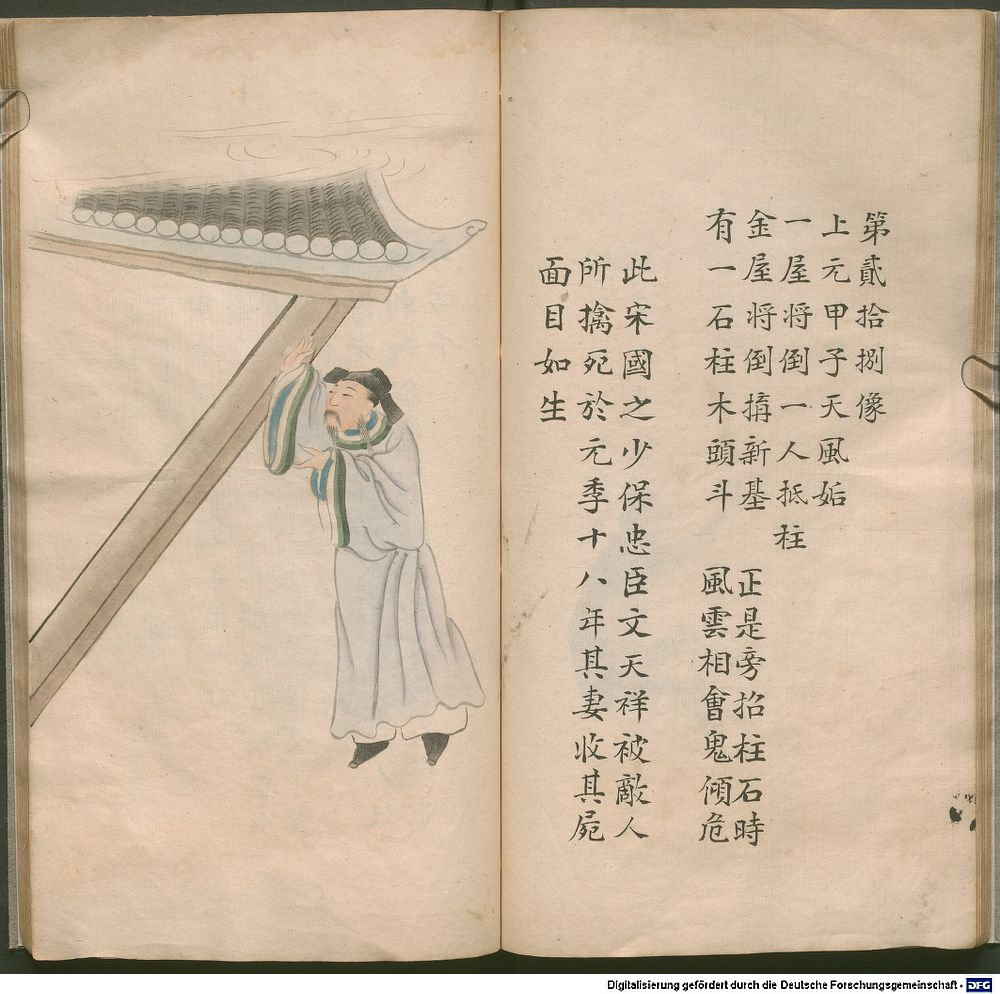 第貳拾捌像
上元甲子天風姤
一屋将倒一人抵柱
金屋将倒搘新基
正是旁招柱石時
有一石柱木頭斗
風雲相會鬼傾危
此宋國之少保忠臣文天祥被敵人
所擒死於元季十八年其妻收其屍
面目如生
Digitalisierung gefördert durch die Deutsche Forschungsgemeinschaft - DFG